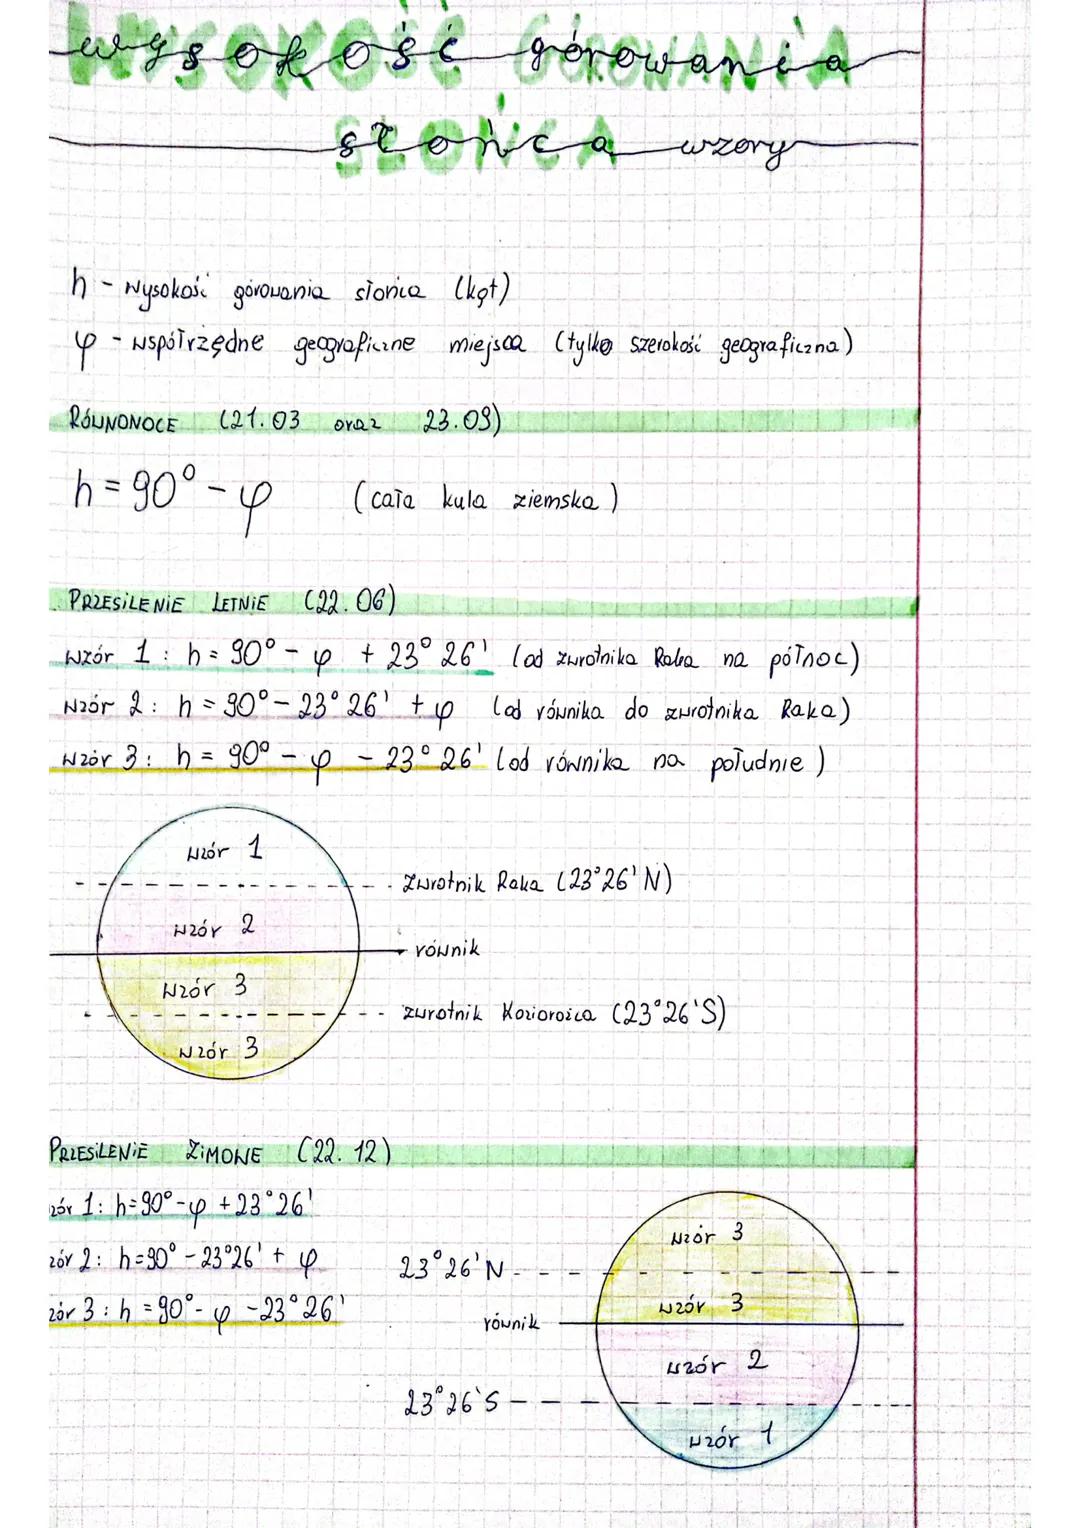 wysokość górowania
słońca wzory
h - wysokość górowania słońca (kąt)
φ - współrzędne geograficzne miejsca (tylko szerokość geograficzna)
RÓWNONOCE (21.03 oraz 23.09)
h = 90° - φ (cała kula ziemska)
PRZESILENIE LETNIE (22.06)
wzór 1: h = 90° - φ + 23°26' (od zwrotnika Raka na północ)
wzór 2: h = 90° - 23°26' + φ (od równika do zwrotnika Raka)
wzór 3: h = 90° - φ - 23°26' (od równika na południe)
wzór 1
zwrotnik Raka (23°26'N)
wzór 2
równik
wzór 3
zwrotnik Koziorożca (23°26'S)
wzór 3
PRZESILENIE ZIMOWE (22.12)
zór 1: h=90°-φ +23°26'
zór 2: h=90° - 23°26' + φ
zór 3: h = 90° - φ - 23°26'
wzór 3
23°26'N
wzór 3
równik
wzór 2
23°26'S
wzór 1